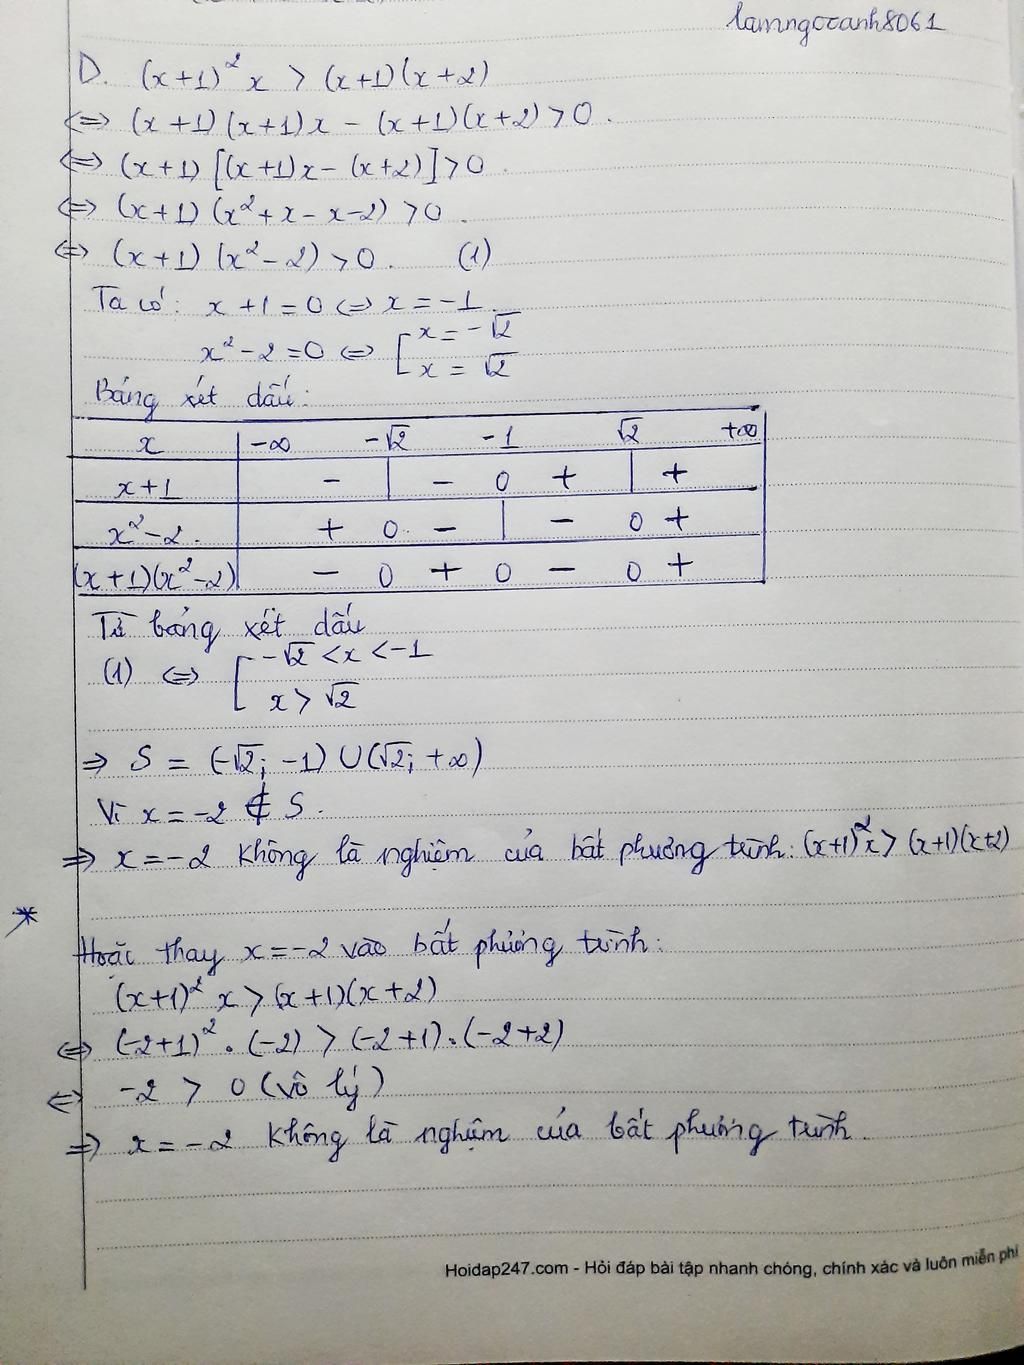 lamngocanh8061
D. (x+1)² x > (x+1)(x+2)
⇔ (x+1)(x+1)x - (x+1)(x+2) > 0.
⇔ (x+1)[(x+1)x - (x+2)] > 0.
⇔ (x+1)(x²+x-x-2) > 0.
⇔ (x+1)(x²-2) > 0. (1)
Ta có: x+1=0 ⇔ x = -1.
x²-2=0 ⇔ [ x = -√2
x = √2
Bảng xét dấu:
x | -∞ -√2 -1 √2 +∞
x+1 | - | - 0 + | +
x²-2. | + 0 - | - 0 +
(x+1)(x²-2) | - 0 + 0 - 0 +
Từ bảng xét dấu
(1) ⇔ [ -√2 < x < -1
x > √2
⇒ S = (-√2; -1) ∪ (√2; +∞)
Vì x = -2 ∉ S.
⇒ x = -2 không là nghiệm của bất phương trình: (x+1)²x > (x+1)(x+2)
*
Hoặc thay x = -2 vào bất phương trình:
(x+1)² x > (x+1)(x+2)
⇔ (-2+1)² . (-2) > (-2+1).(-2+2)
⇔ -2 > 0 (vô lý)
⇒ x = -2 không là nghiệm của bất phương trình.
Hoidap247.com - Hỏi đáp bài tập nhanh chóng, chính xác và luôn miễn phí